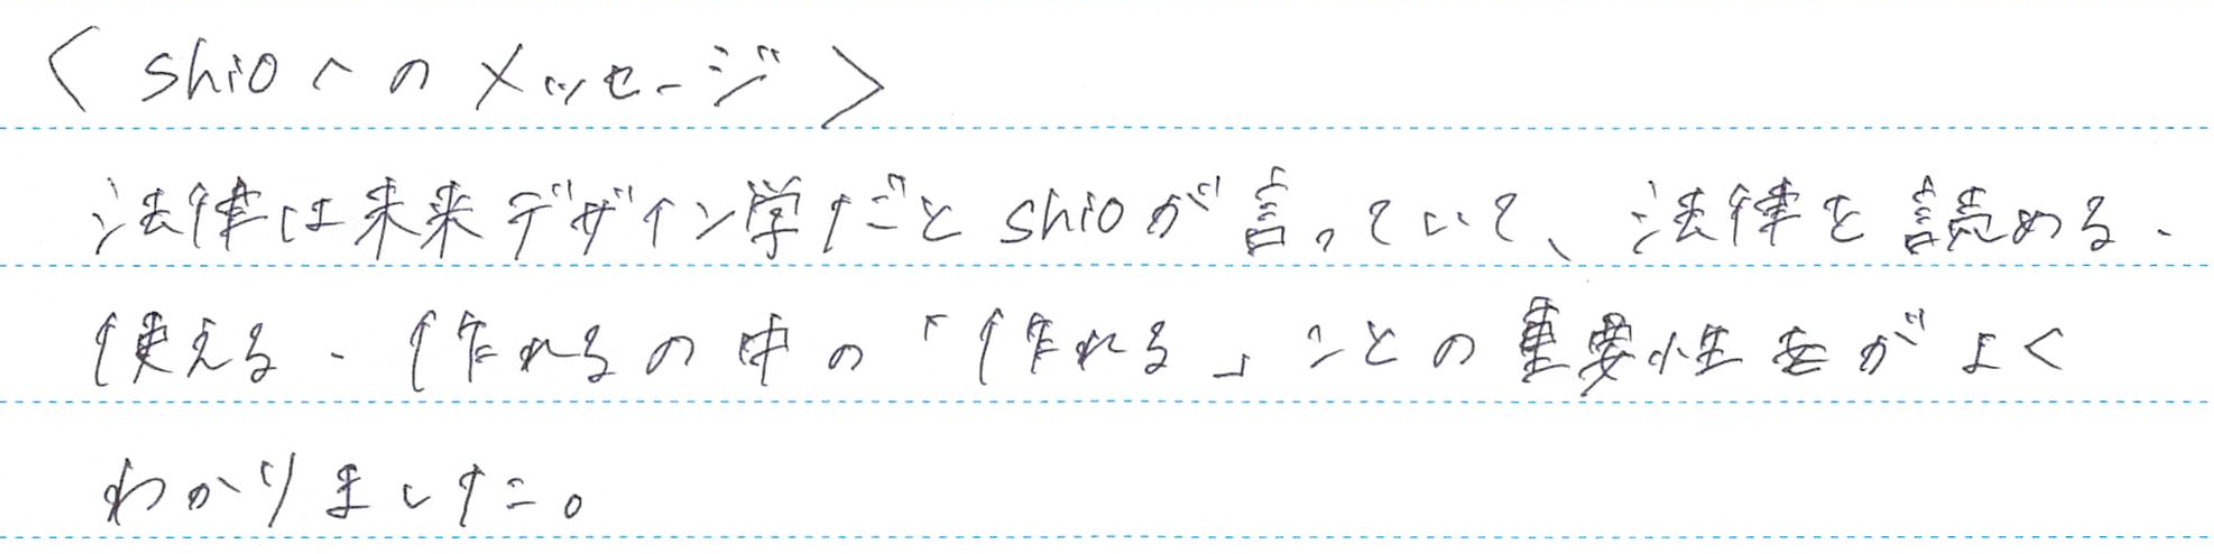 ＜shioへのメッセージ＞
法律は未来デザイン学だとshioが言っていて、法律を読める・
使える・作れるの中の「作れる」ことの重要性がよく
わかりました。